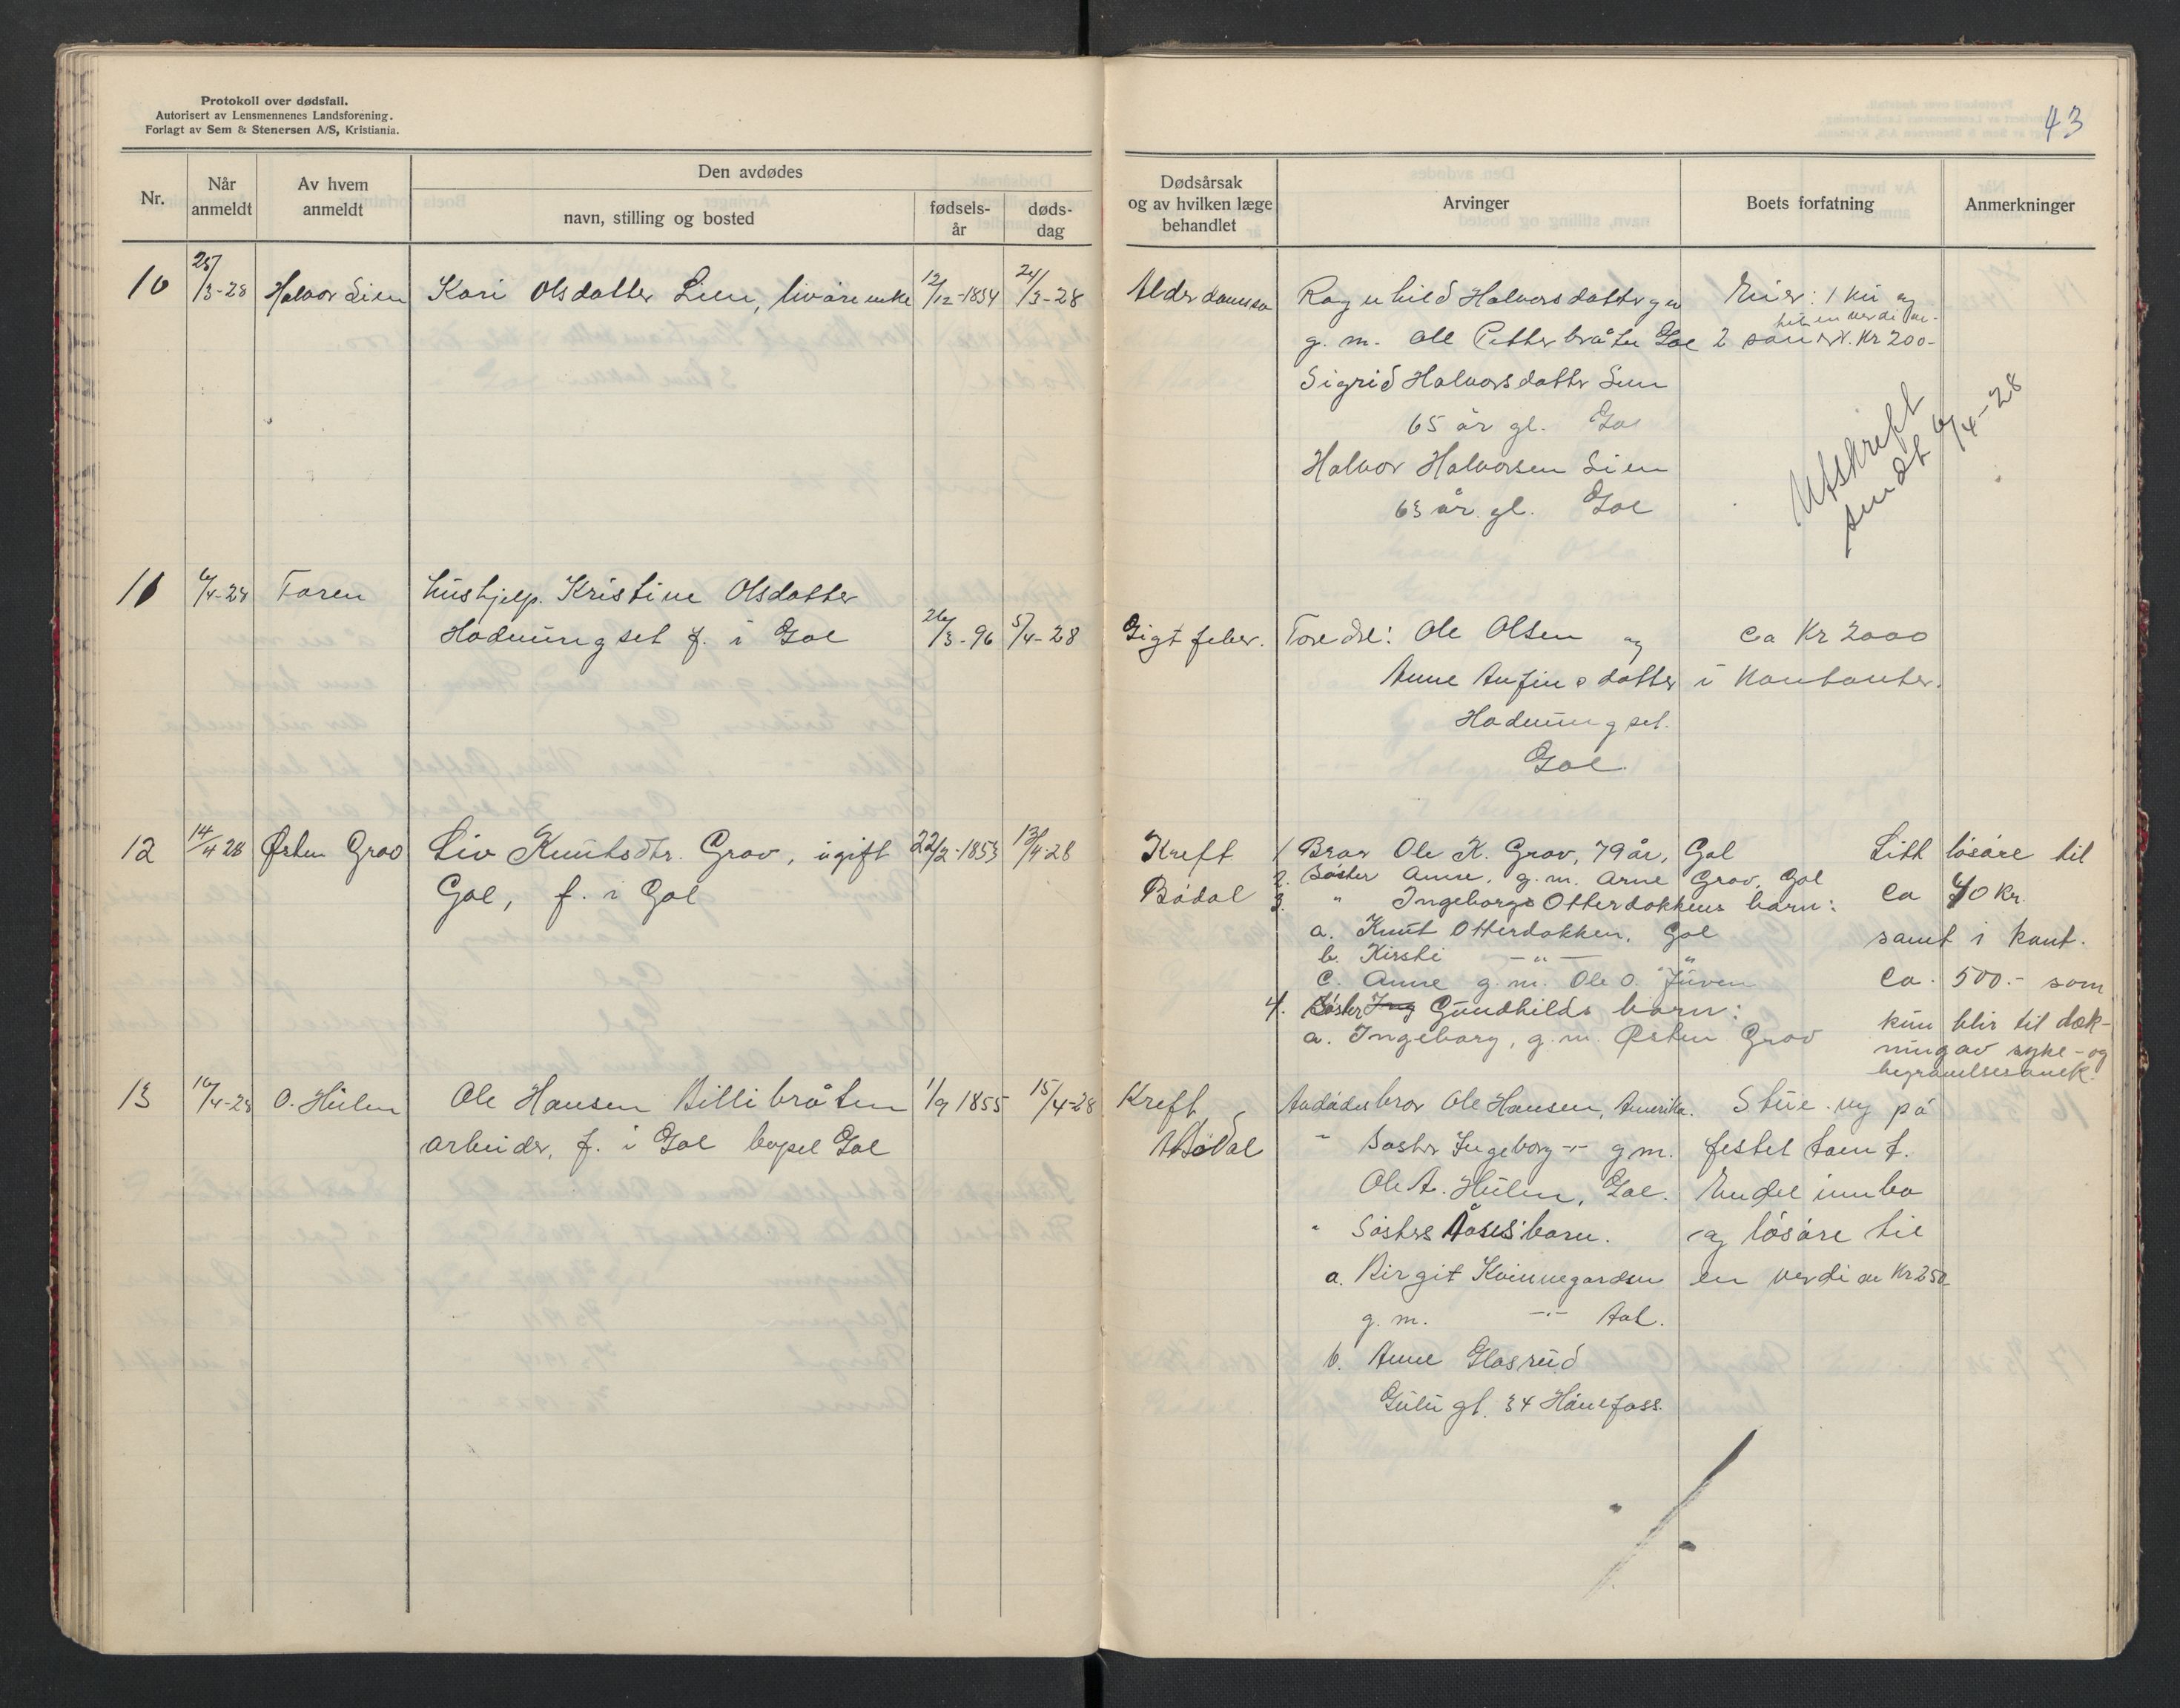 Protokoll over dødsfall.
Autorisert av Lensmennenes Landsforening.
Forlagt av Sem & Stenersen A/S, Kristiania.
43
Nr.
Når anmeldt
Av hvem anmeldt
Den avdødes
navn, stilling og bosted
fødsels-år
døds-dag
Dødsårsak og av hvilken læge behandlet
Arvinger
Boets forfatning
Anmerkninger
10 25/3-28 Halvor Lien Kari Olsdatter Lien, livøre enke 12/12-1834 24/3-28 Alderdomssv
Ragnhild Halvorsdatter
g. m. Ole Petterbråten Gol
Sigrid Halvorsdatter Lien
65 år gl. Gol
Halvor Halvorsen Lien
63 år gl. Gol
Eier: 1 ku og
til en verdi av
2 sauer. Kr 200-
Utskrift
sendt 6/4-28
11 6/4-28 Faren hushjelp. Kristine Olsdatter
Hadningset f. i Gol 26/3-96 5/4-28 Gigtfeber.
Foreldre: Ole Olsen og
Anne Anfinsdatter
Hadningset.
Gol.
Ca Kr 2000
i kontanter.
12 14/4 28 Østen Grov Liv Knutsdtr. Grov, ugift 22/2-1853 13/4-28 Kreft
Gol, f. i Gol Bødal
1 Bror Ole K. Grov, 79 år, Gol
2. Søster Anne, g. m. Arne Grov, Gol
3. " Ingeborgs Otterdokkens barn:
a. Knut Otterdokken, Gol
b. Kirsti -"- "
c. Anne g. m. Ole O. Juven
4. Søster Ing Gundhilds barn:
a. Ingeborg, g. m. Østen Grov
Litt løsøre til
ca 40 kr.
samt i kont.
ca. 500.- som
kun blir til dek-
ning av syke- og
begravelsesomk.
13 16/4-28 O. Hulen Ole Hansen Billibråten 1/9 1855 15/4-28 Kreft
arbeider, f. i Gol bopel Gol Bødal
Avdødes bror Ole Hansen, Amerika.
" Søster Ingeborg -"- g m.
Ole A. Hulen, Gol.
" Søsters Åses barn.
a. Birgit Kvinnegarden
g. m. -"- Aal.
b. Anne Glasrud
Gulu gt. 34 Hønefoss.
Stue. ny på
festet tomt.
Endel innbo
og løsøre til
en verdi av Kr 250-